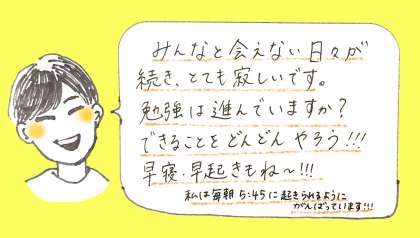 みんなと会えない日々が
続き、とても寂しいです。
勉強は進んでいますか？
できることをどんどんやろう!!!
早寝・早起きもね〜!!!
私は毎朝5:45に起きられるように
がんばっています!!!